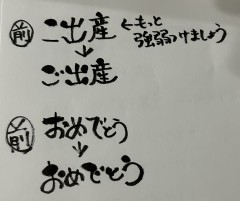 前 ご出産 ←もっと
強弱つけましょう
↓
ご出産
前 おめでとう
↓
おめでとう